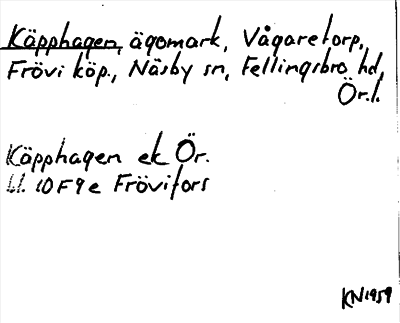 Käpphagen, ägomark, Vågaretorp,
Frövi köp., Näsby sn, Fellingsbro hd,
Ör.l.
Käpphagen ek Ör.
bl. 10F9e Frövifors
KN1959